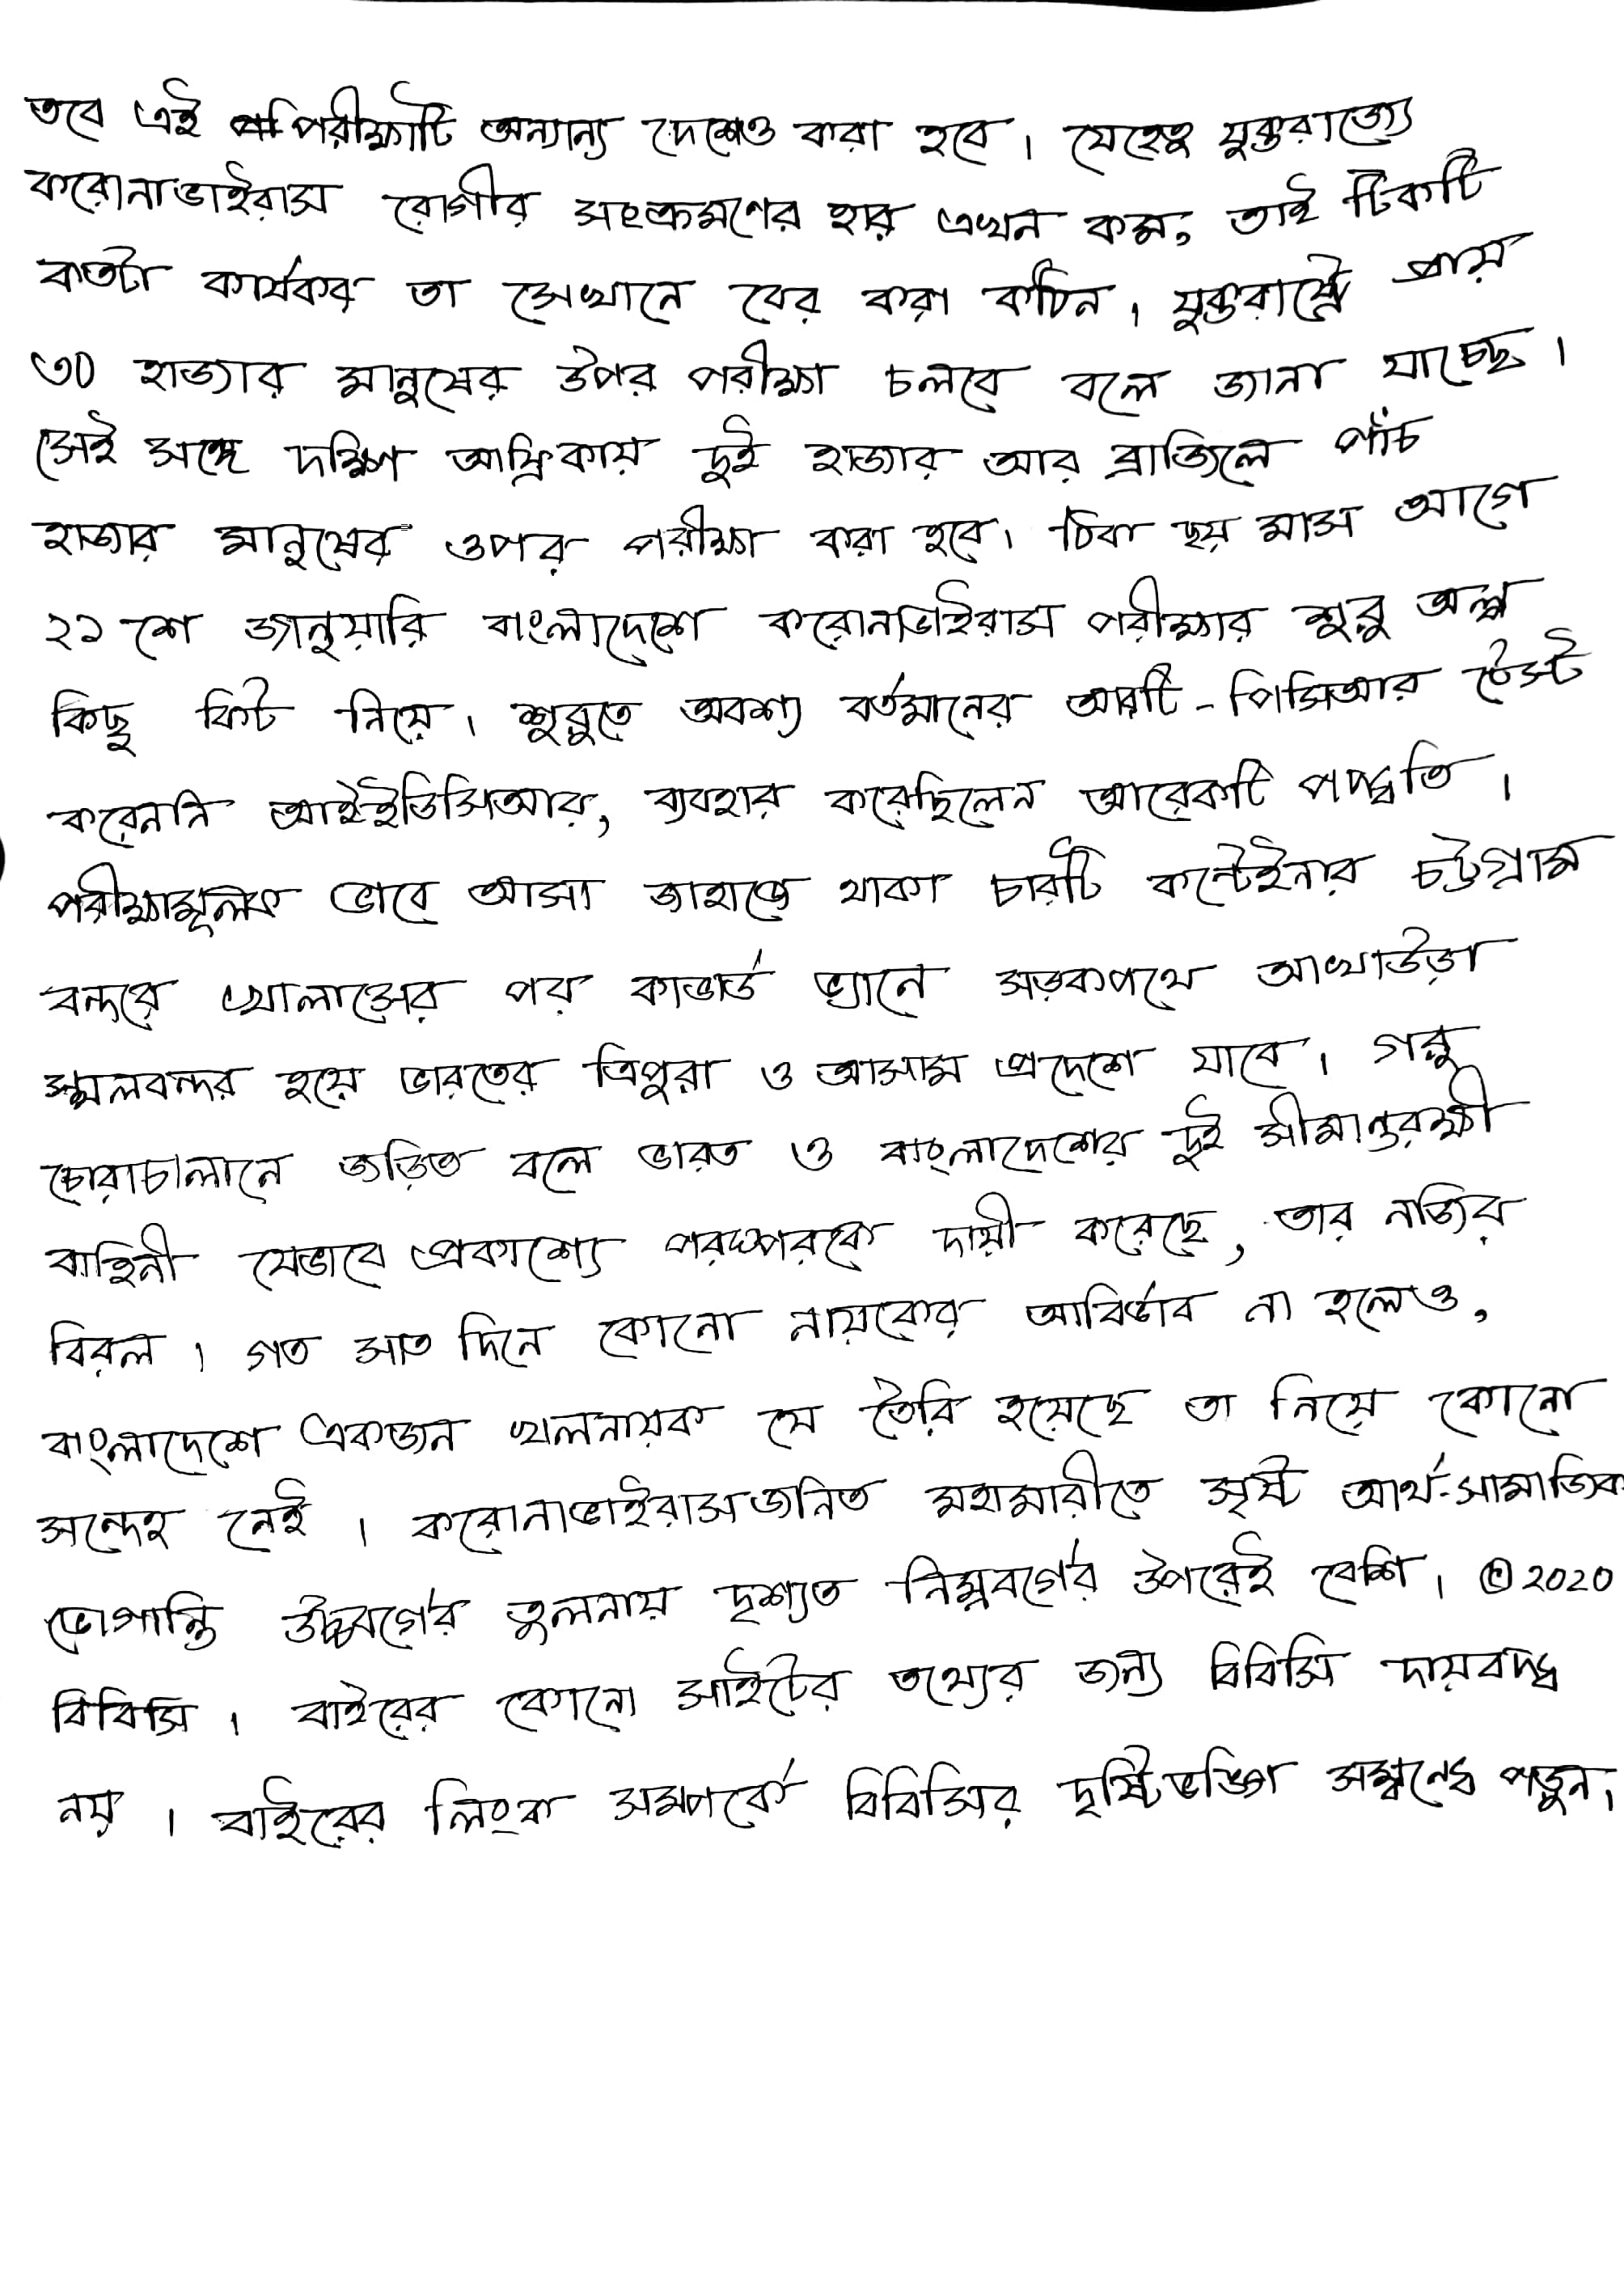 তবে এই পরীক্ষাটি অন্যান্য দেশেও করা হবে। যেহেতু যুক্তরাজ্যে
করোনাভাইরাস রোগীর সংক্রমণের হার এখন কম, তাই টিকাটি
কতটা কার্যকর তা সেখানে বের করা কঠিন। যুক্তরাষ্ট্রে প্রায়
৩০ হাজার মানুষের উপর পরীক্ষা চলবে বলে জানা যাচ্ছে।
সেই সঙ্গে দক্ষিণ আফ্রিকায় দুই হাজার আর ব্রাজিলে পাঁচ
হাজার মানুষের ওপর পরীক্ষা করা হবে। ঠিক ছয় মাস আগে
২১ শে জানুয়ারি বাংলাদেশে করোনাভাইরাস পরীক্ষার শুরু অল্প
কিছু কিট নিয়ে। শুরুতে অবশ্য বর্তমানের আরটি-পিসিআর টেস্ট
করেননি আইইডিসিআর, ব্যবহার করেছিলেন আরেকটি পদ্ধতি।
পরীক্ষামূলক ভাবে আসা জাহাজে থাকা চারটি কন্টেইনার চট্টগ্রাম
বন্দরে খোলাসের পর কাভার্ড ভ্যানে সড়কপথে আখাউড়া
স্থলবন্দর হয়ে ভারতের ত্রিপুরা ও আসাম প্রদেশে যাবে। গরু
চোরাচালানে জড়িত বলে ভারত ও বাংলাদেশের দুই সীমান্তরক্ষী
বাহিনী যেভাবে প্রকাশ্যে পরস্পরকে দায়ী করেছে, তার নজির
বিরল। গত সাত দিনে কোনো নায়কের আবির্ভাব না হলেও,
বাংলাদেশে একজন খলনায়ক যে তৈরি হয়েছে তা নিয়ে কোনো
সন্দেহ নেই। করোনাভাইরাসজনিত মহামারীতে সৃষ্ট আর্থ-সামাজিক
ভোগান্তি উচ্চবর্গের তুলনায় দৃশ্যত নিম্নবর্গের উপরেই বেশি। © 2020
বিবিসি। বাইরের কোনো সাইটের তথ্যের জন্য বিবিসি দায়বদ্ধ
নয়। বাইরের লিংক সম্পর্কে বিবিসির দৃষ্টিভঙ্গি সম্বন্ধে পড়ুন।